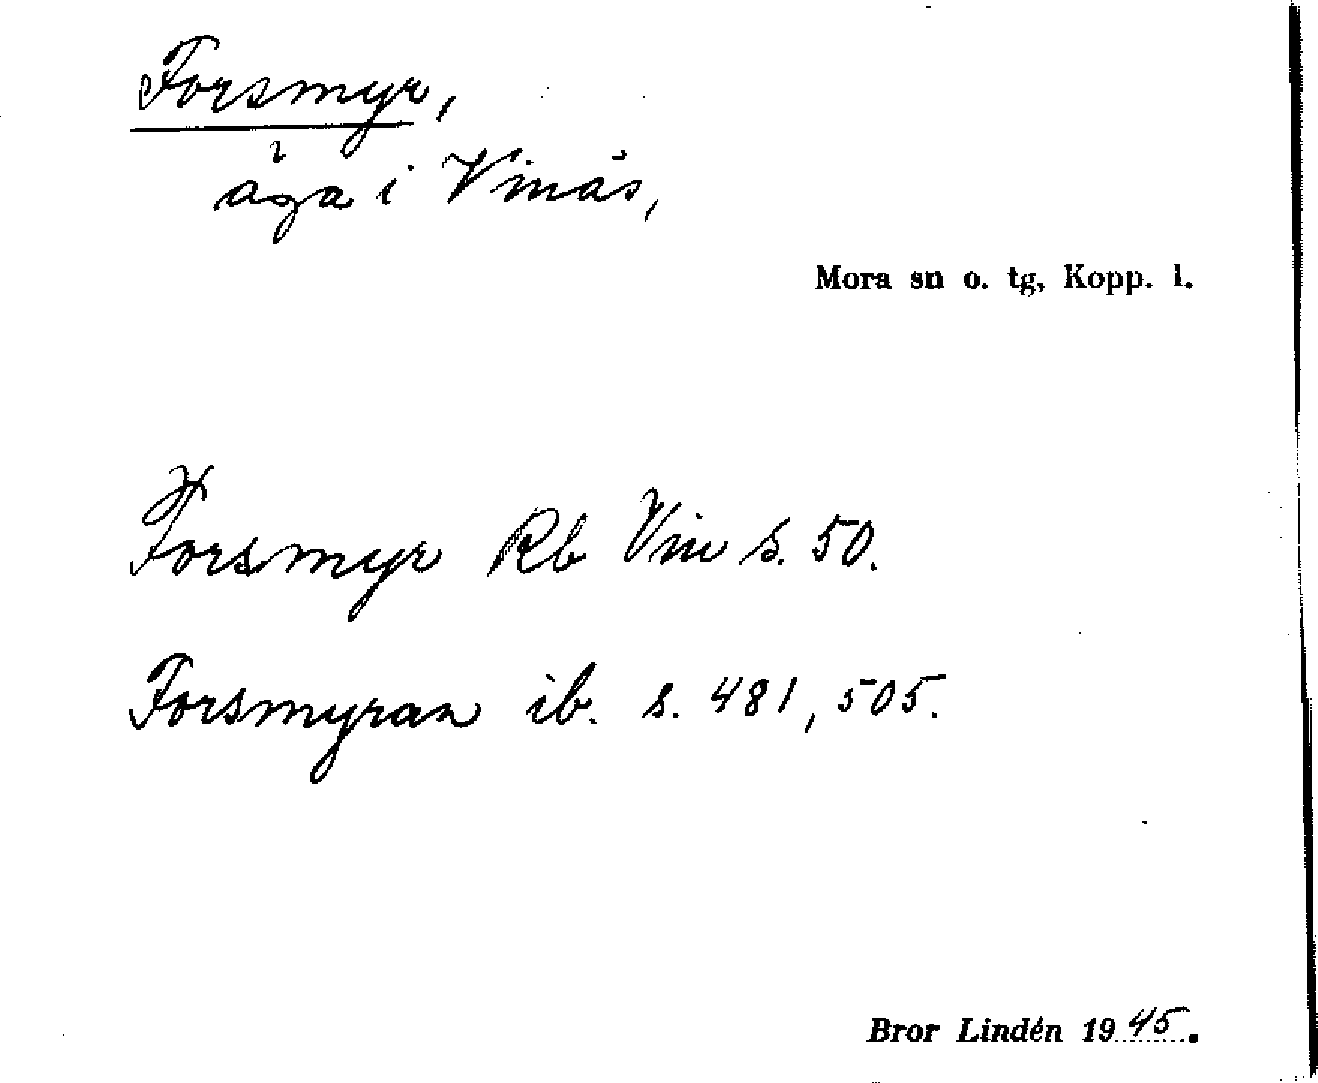 Forsmyr,
äga i Vinäs,
Mora sn o. tg, Kopp. l.
Forsmyr Rb Vin s. 50.
Forsmyran ib. s. 481, 505.
Bror Lindén 1945.